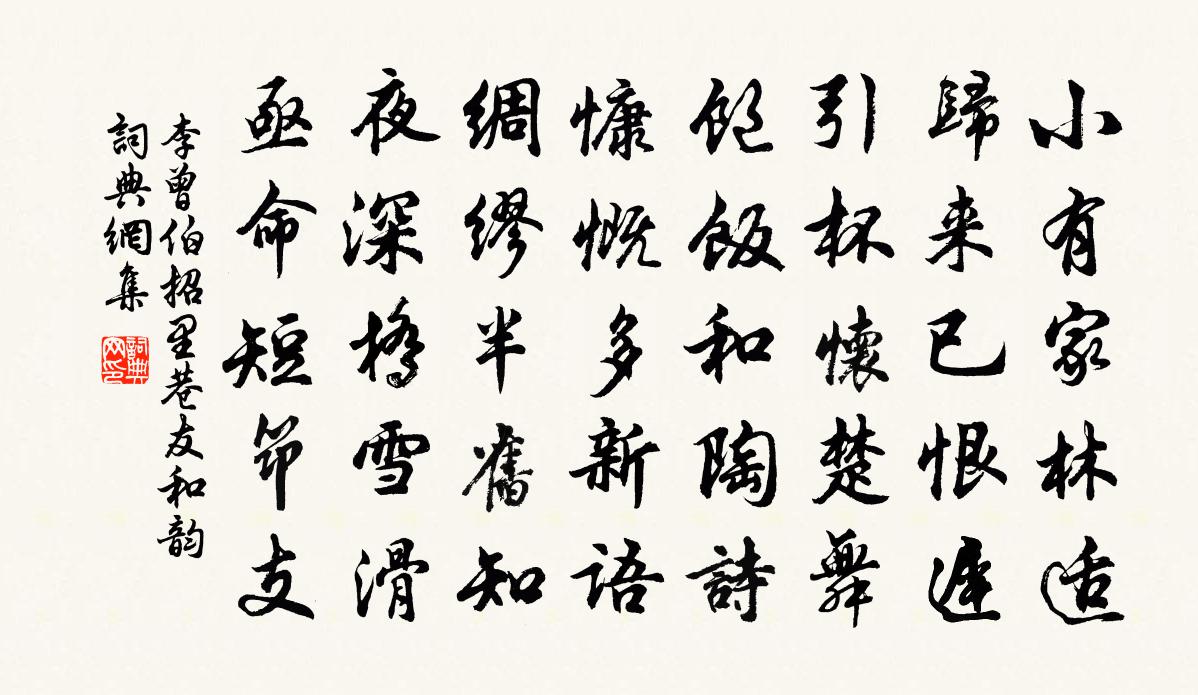 小有家林适
歸来已恨遲
引杯懷楚舞
飽飯和陶詩
慷慨多新語
綢繆半舊知
夜深橋雪滑
亟命短筇支
李曾伯招里巷友和韵
詞典網集
詞典网印